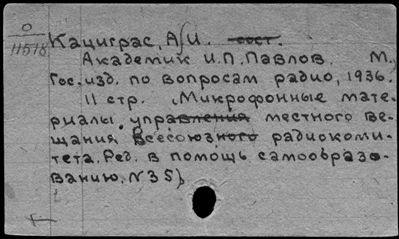 О
11518
Кациграс, А.И. сост.
Академик И.П. Павлов. М.,
Гос. изд. по вопросам радио, 1936.
11 стр. (Микрофонные мате-
риалы управления местного ве-
щания Всесоюзного радиокоми-
тета. Ред. в помощь самообразо-
ванию. N35)